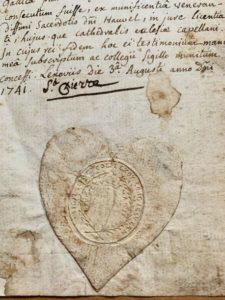 consecutum fuisse, ex munificentia veneran-
Diſſimi Sacerdotis Dni Hauvel, in jure licentia
ti hujus que cathedralis ecclesiæ capellani.
In cujus rei fidem hoc ei testimonium manu
meâ subscriptum ac collegii sigillo munitum
concessi. Die 3ª. Augusti anno Dni
1741.